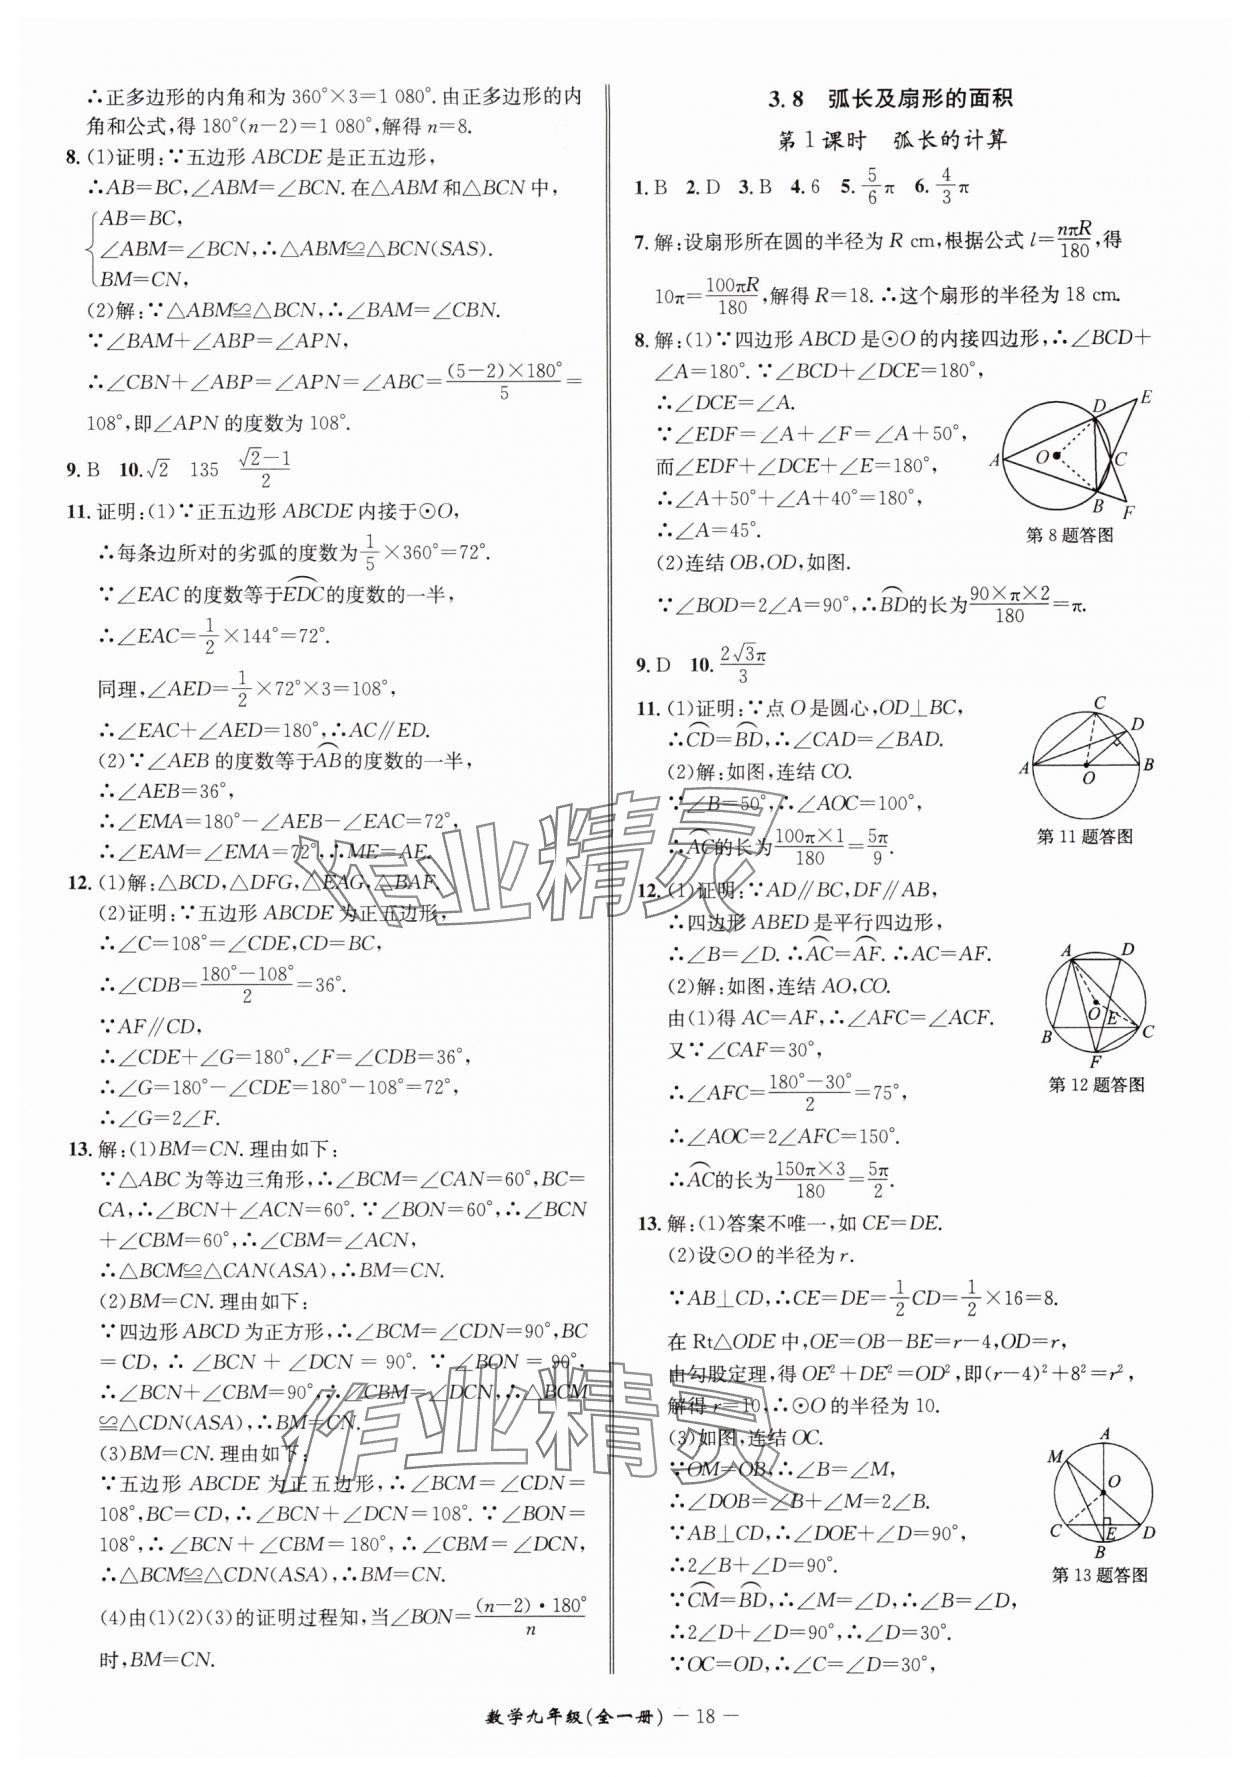 ∴正多边形的内角和为360°×3=1 080°.由正多边形的内
角和公式,得180°(n-2)=1 080°,解得n=8.
8. (1)证明:∵五边形ABCDE是正五边形,
∴AB=BC,∠ABM=∠BCN.在△ABM和△BCN中,
{AB=BC,
∠ABM=∠BCN,∴△ABM≌△BCN(SAS).
BM=CN,
(2)解:∵△ABM≌△BCN,∴∠BAM=∠CBN.
∵∠BAM+∠ABP=∠APN,
∴∠CBN+∠ABP=∠APN=∠ABC=(5-2)×180°/5=
108°,即∠APN的度数为108°.
9. B 10. √2 135 (√2-1)/2
11. 证明:(1)∵正五边形ABCDE内接于⊙O,
∴每条边所对的劣弧的度数为1/5×360°=72°.
∵∠EAC的度数等于⌒EDC的度数的一半,
∴∠EAC=1/2×144°=72°.
同理,∠AED=1/2×72°×3=108°,
∴∠EAC+∠AED=180°,∴AC∥ED.
(2)∵∠AEB的度数等于⌒AB的度数的一半,
∴∠AEB=36°,
∴∠EMA=180°-∠AEB-∠EAC=72°,
∴∠EAM=∠EMA=72°,∴ME=AE.
12. (1)解:△BCD,△DFG,△EAG,△BAF.
(2)证明:∵五边形ABCDE为正五边形,
∴∠C=108°=∠CDE,CD=BC,
∴∠CDB=(180°-108°)/2=36°.
∵AF∥CD,
∴∠CDE+∠G=180°,∠F=∠CDB=36°,
∴∠G=180°-∠CDE=180°-108°=72°,
∴∠G=2∠F.
13. 解:(1)BM=CN.理由如下:
∵△ABC为等边三角形,∴∠BCM=∠CAN=60°,BC=
CA,∴∠BCN+∠ACN=60°.∵∠BON=60°,∴∠BCN
+∠CBM=60°,∴∠CBM=∠ACN,
∴△BCM≌△CAN(ASA),∴BM=CN.
(2)BM=CN.理由如下:
∵四边形ABCD为正方形,∴∠BCM=∠CDN=90°,BC
=CD,∴∠BCN+∠DCN=90°. ∵∠BON=90°,
∴∠BCN+∠CBM=90°,∴∠CBM=∠DCN,∴△BCM
≌△CDN(ASA),∴BM=CN.
(3)BM=CN.理由如下:
∵五边形ABCDE为正五边形,∴∠BCM=∠CDN=
108°,BC=CD,∴∠BCN+∠DCN=108°.∵∠BON=
108°,∴∠BCN+∠CBM=180°,∴∠CBM=∠DCN,
∴△BCM≌△CDN(ASA),∴BM=CN.
(4)由(1)(2)(3)的证明过程知,当∠BON=(n-2)·180°/n
时,BM=CN.
3.8 弧长及扇形的面积
第1课时 弧长的计算
1. B 2. D 3. B 4. 6 5. 5/6π 6. 4/3π
7. 解:设扇形所在圆的半径为R cm,根据公式l=nπR/180,得
10π=100πR/180,解得R=18.∴这个扇形的半径为18 cm.
8. 解:(1)∵四边形ABCD是⊙O的内接四边形,∴∠BCD+
∠A=180°.∵∠BCD+∠DCE=180°,
∴∠DCE=∠A.
∵∠EDF=∠A+∠F=∠A+50°,
而∠EDF+∠DCE+∠E=180°,
∴∠A+50°+∠A+40°=180°,
∴∠A=45°.
(2)连结OB,OD,如图.
∵∠BOD=2∠A=90°,∴⌒BD的长为90×π×2/180=π.
A O D E C B F
第8题答图
9. D 10. 2√3π/3
11. (1)证明:∵点O是圆心,OD⊥BC,
∴⌒CD=⌒BD,∴∠CAD=∠BAD.
(2)解:如图,连结CO.
∵∠B=50°,∴∠AOC=100°,
∴⌒AC的长为100π×1/180=5π/9.
C D A O B
第11题答图
12. (1)证明:∵AD∥BC,DF∥AB,
∴四边形ABED是平行四边形,
∴∠B=∠D.∴⌒AC=⌒AF.∴AC=AF.
(2)解:如图,连结AO,CO.
由(1)得AC=AF,∴∠AFC=∠ACF.
又∵∠CAF=30°,
∴∠AFC=(180°-30°)/2=75°,
∴∠AOC=2∠AFC=150°.
∴⌒AC的长为150π×3/180=5π/2.
A D O E B C F
第12题答图
13. 解:(1)答案不唯一,如CE=DE.
(2)设⊙O的半径为r.
∵AB⊥CD,∴CE=DE=1/2CD=1/2×16=8.
在Rt△ODE中,OE=OB-BE=r-4,OD=r,
由勾股定理,得OE²+DE²=OD²,即(r-4)²+8²=r²,
解得r=10,∴⊙O的半径为10.
(3)如图,连结OC.
∵OM=OB,∴∠B=∠M,
∴∠DOB=∠B+∠M=2∠B.
∵AB⊥CD,∴∠DOE+∠D=90°,
∴2∠B+∠D=90°.
∵⌒CM=⌒BD,∴∠M=∠D,∴∠B=∠D,
∴2∠D+∠D=90°,∴∠D=30°.
∵OC=OD,∴∠C=∠D=30°,
A M O C E D B
第13题答图
数学九年级(全一册) — 18 —
作业精灵
作业精灵